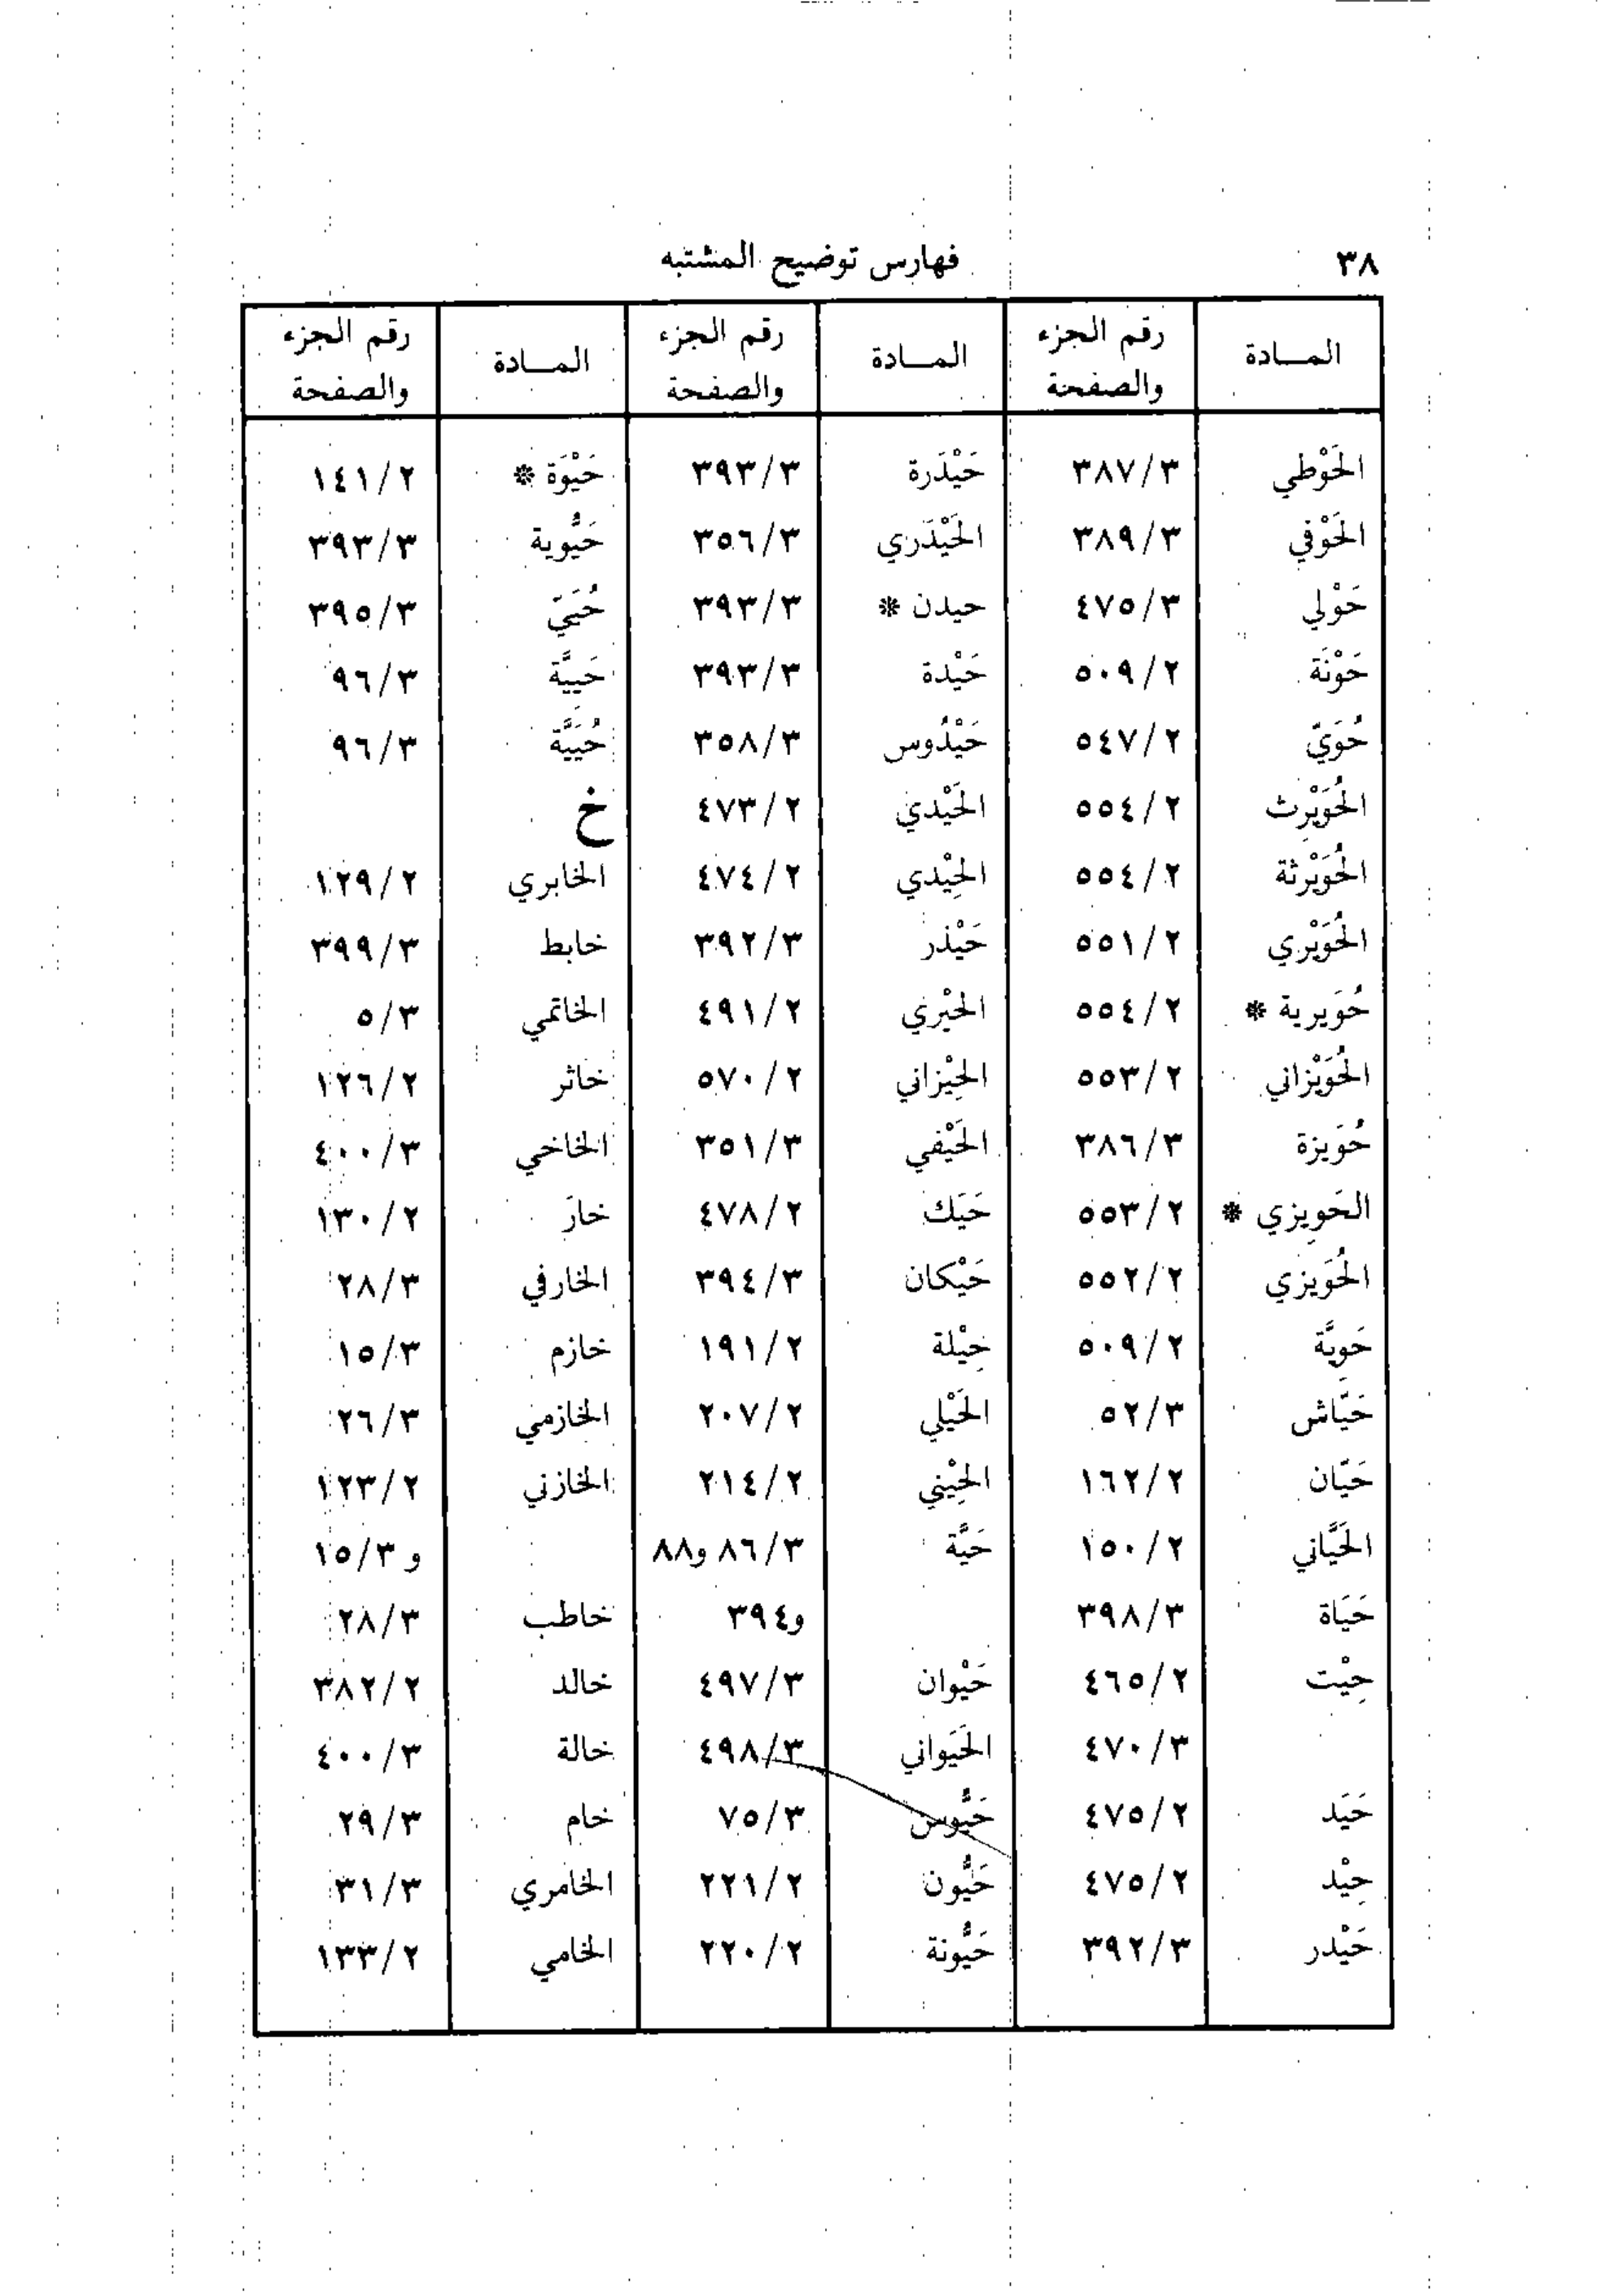 ٣٨ فهارس توضيح المشتبه
المــادة رقم الجزء والصفحة المــادة رقم الجزء والصفحة المــادة رقم الجزء والصفحة
الحَوْطي ٣٨٧/٣ حَيْدَرة ٣٩٣/٣ حَيْوَة * ١٤١/٢
الحَوْفي ٣٨٩/٣ الحَيْدَري ٣٥٦/٣ حَيُّوية ٣٩٣/٣
حَوْلي ٤٧٥/٣ حيدن * ٣٩٣/٣ حُيَيّ ٣٩٥/٣
حَوْنَة ٥٠٩/٢ حَيْدة ٣٩٣/٣ حَيِيَّة ٩٦/٣
حُوَيّ ٥٤٧/٢ حَيْدُوس ٣٥٨/٣ حُيَيَّة ٩٦/٣
الحُوَيْرِث ٥٥٤/٢ الحَيْدي ٤٧٣/٢ خ
الحُوَيْرثة ٥٥٤/٢ الحِيْدي ٤٧٤/٢ الخابري ١٢٩/٢
الحُوَيْري ٥٥١/٢ حَيْذر ٣٩٢/٣ خابط ٣٩٩/٣
حُوَيرية * ٥٥٤/٢ الحيْري ٤٩١/٢ الخاتمي ٥/٣
الحُوَيْزاني ٥٥٣/٢ الحِيْزاني ٥٧٠/٢ خاثر ١٢٦/٢
حُوَيزة ٣٨٦/٣ الحَيْفي ٣٥١/٣ الخاخي ٤٠٠/٣
الحَوِيزي * ٥٥٣/٢ حَيَك ٤٧٨/٢ خارَ ١٣٠/٢
الحُوَيزي ٥٥٢/٢ حَيْكان ٣٩٤/٣ الخارفي ٢٨/٣
حَوِيَّة ٥٠٩/٢ حِيْلة ١٩١/٢ خازم ١٥/٣
حَيّاش ٥٢/٣ الحَيْلي ٢٠٧/٢ الخازمي ٢٦/٣
حَيّان ١٦٢/٢ الحِيْني ٢١٤/٢ الخازني ١٢٣/٢
الحَيَّاني ١٥٠/٢ حَيَّة ٨٦/٣ و٨٨ و ١٥/٣
حَيَاة ٣٩٨/٣ و٣٩٤ خاطب ٢٨/٣
حِيْت ٤٦٥/٢ حَيْوان ٤٩٧/٣ خالد ٣٨٢/٢
٤٧٠/٣ الحَيَواني ٤٩٨/٣ خالة ٤٠٠/٣
حَيَد ٤٧٥/٢ حَيُّوس ٧٥/٣ خام ٢٩/٣
حِيْد ٤٧٥/٢ حَيُّون ٢٢١/٢ الخامري ٣١/٣
حَيْدر ٣٩٢/٣ حَيُّونة ٢٢٠/٢ الخامي ١٣٣/٢